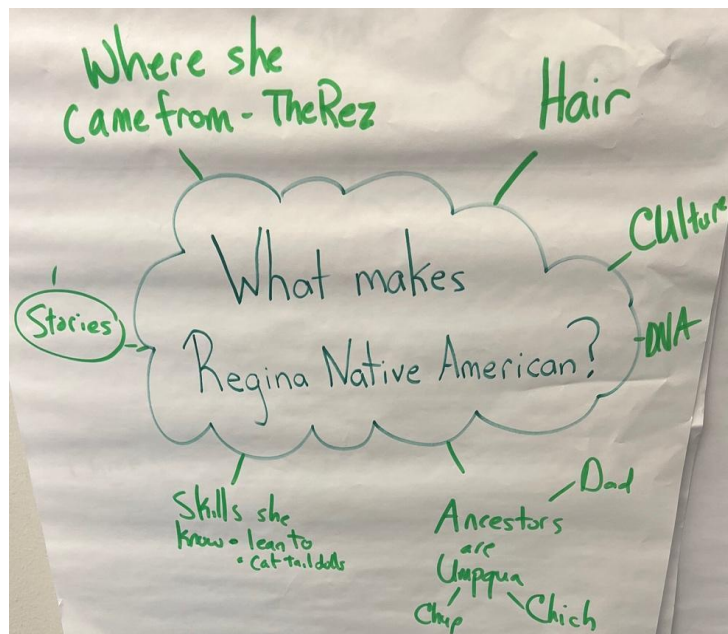 Where she
came from - The Rez
Hair
Culture
-DNA
What makes
Regina Native American?
Stories
Skills she
know • lean to
• cat tail dolls
Dad
Ancestors
are
Umpqua
Chup
Chich